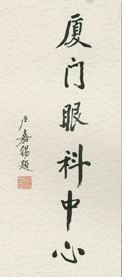 厦门眼科中心
卢嘉锡题